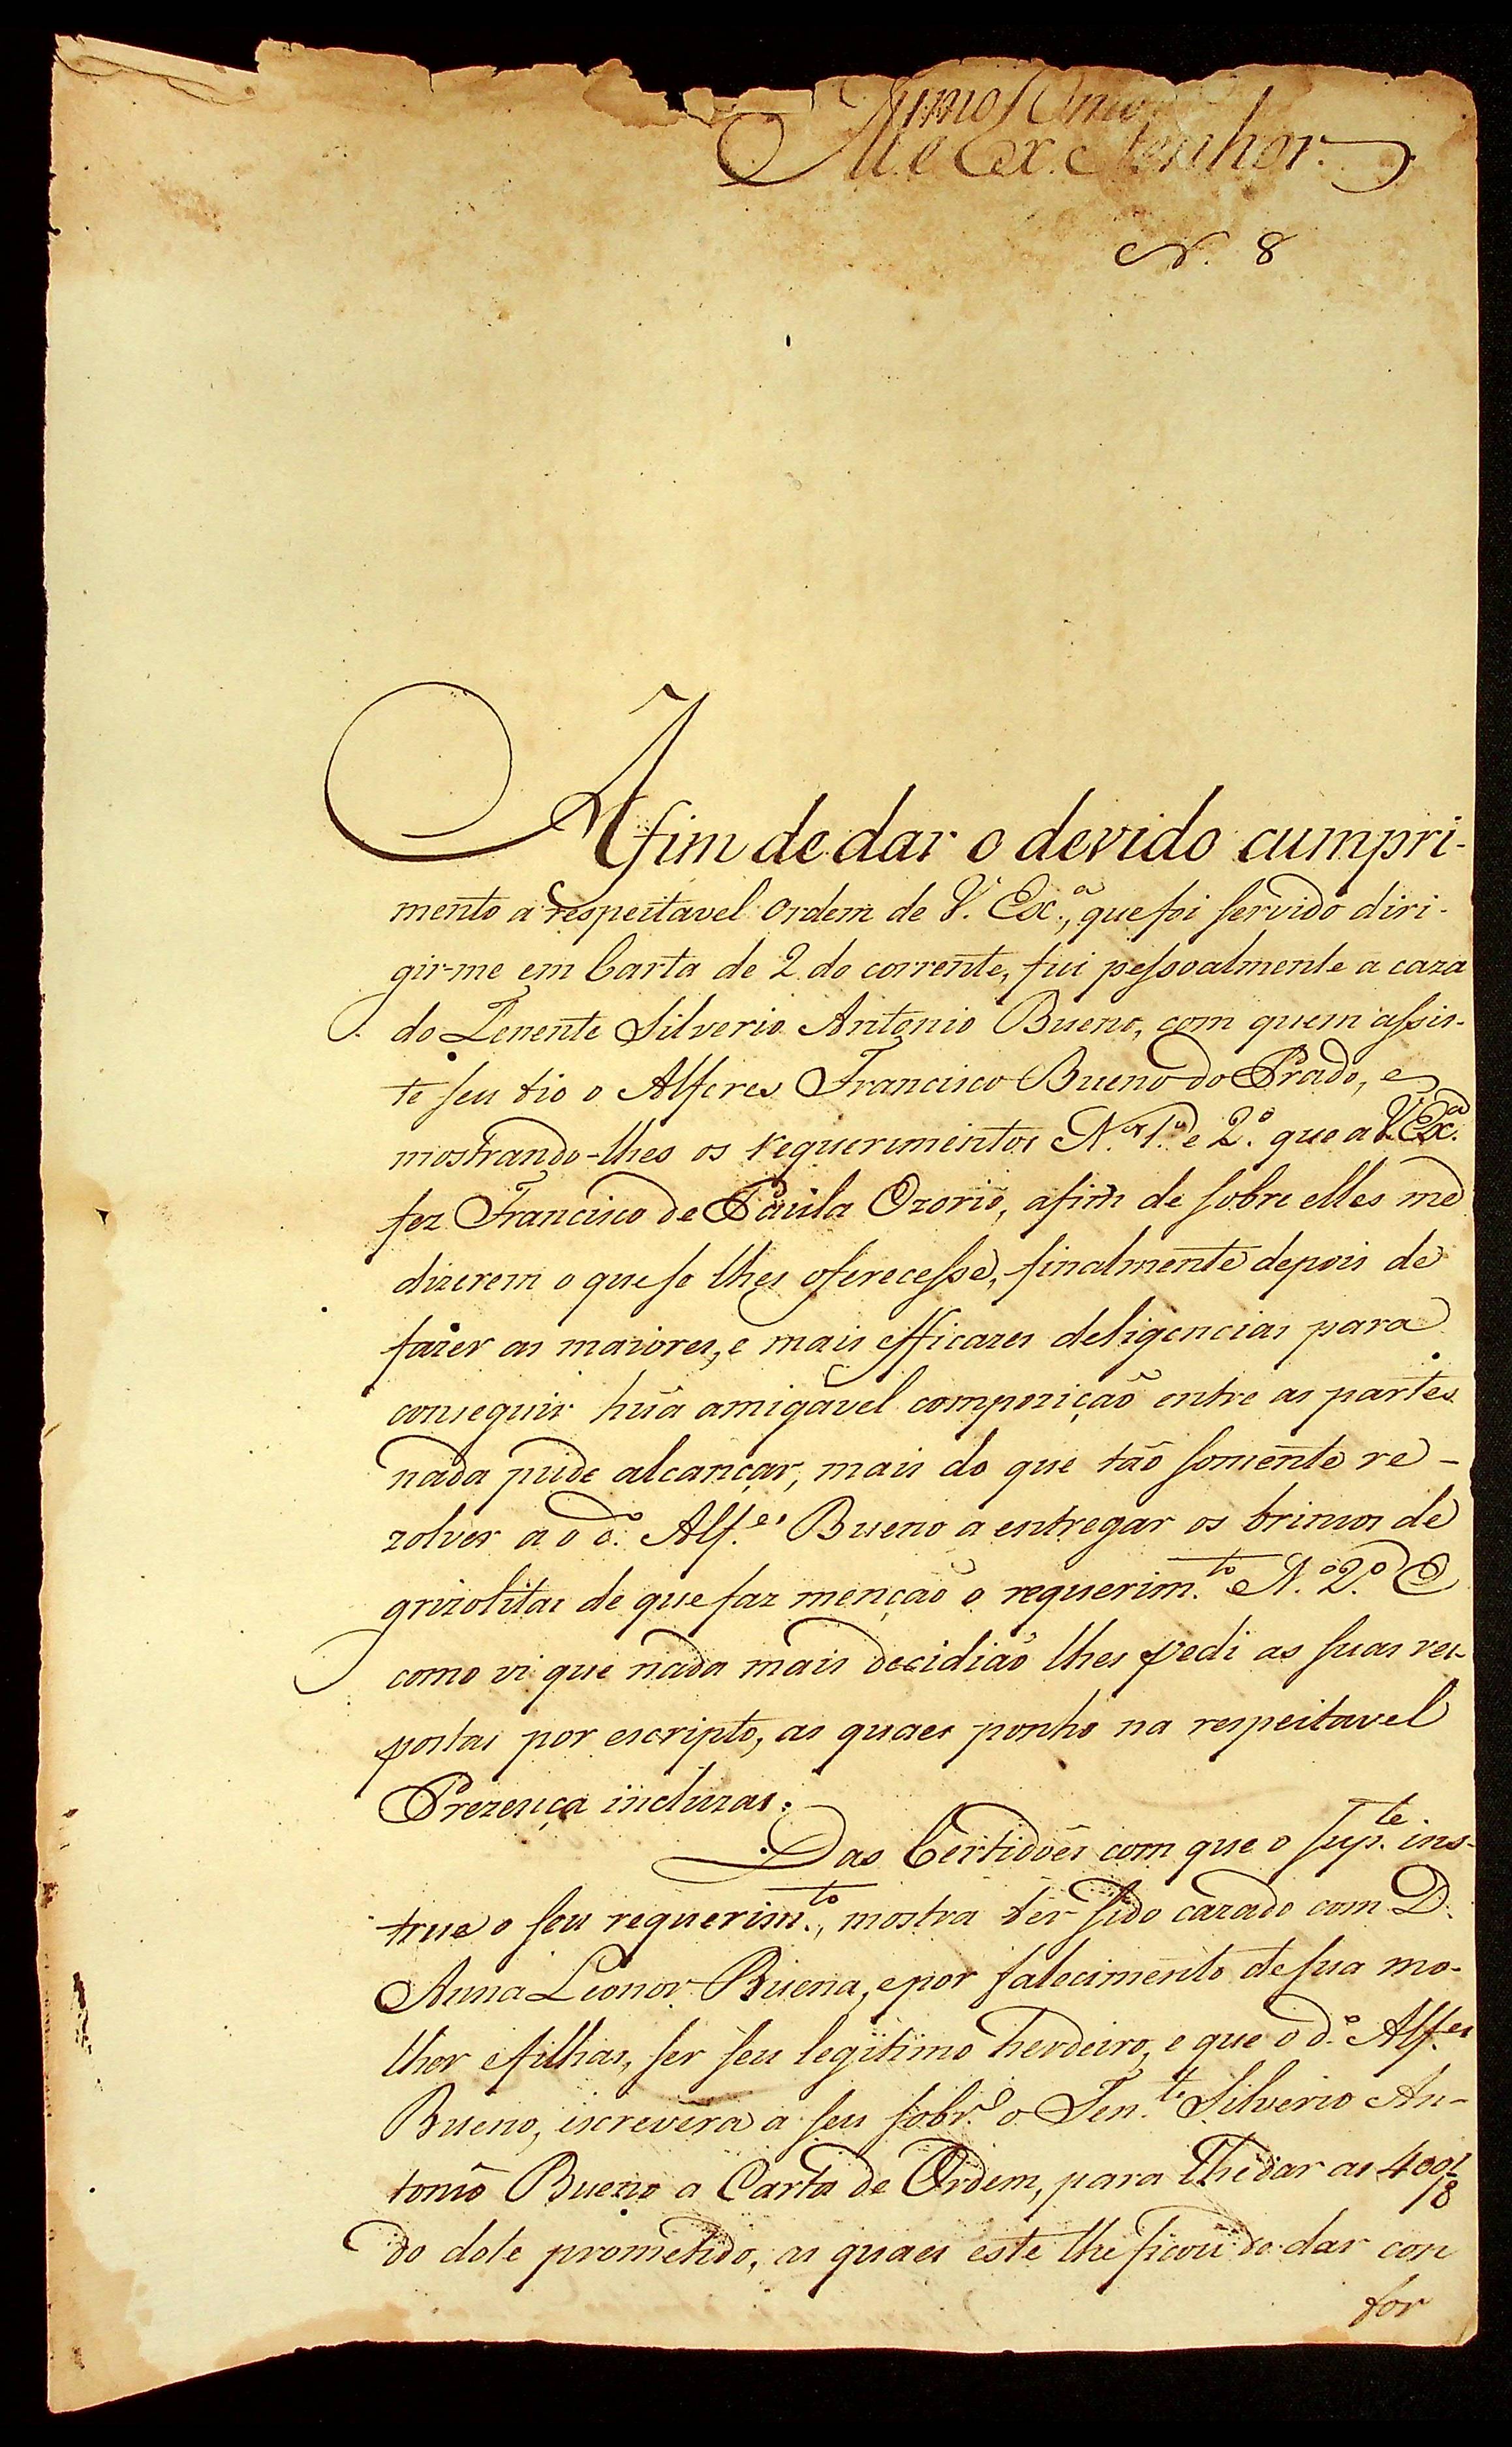 Illmo. e Exmo. Senhor.
N. 8
Afim de dar o devido cumpri-
mento a respeitavel Ordem de V. Exa., que foi servido diri-
gir-me em Carta de 2 do corrente, fui pessoalmente a caza
do Tenente Silverio Antonio Bueno, com quem assis-
te seu tio o Alferes Francisco Bueno do Prado, e
mostrando-lhes os requerimentos N.os 1.º e 2.º que a V. Exa.
fez Francisco de Paula Ozorio, afim de sobre elles me
dizerem o que se lhes oferecesse, finalmente depois de
fazer as maiores, e mais efficazes deligencias para
conseguir hũa amigavel compozição entre as partes
nada pude alcançar, mais do que tão somente re-
zolver a o d.º Alf.es Bueno a entregar os brincos de
grizolitas de que faz menção o requerim.to N.º 2.º E
como vi que nada mais decidião lhes pedi as suas res-
postas por escripto, as quaes ponho na respeitavel
Prezença incluzas.
Das Certidões com que o sup.te ins-
true o seu requerim.to, mostra ter sido cazado com D.
Anna Leonor Buena, e por falecimento de sua mo-
lher e filhas, ser seu legitimo herdeiro, e que o d.º Alf.es
Bueno, escrevêra a seu sobr.º o Ten.te Silverio An-
tonio Bueno a Carta de Ordem, para lhe dar as 400/8
do dote prometido, as quaes este lhe ficou de dar con
for